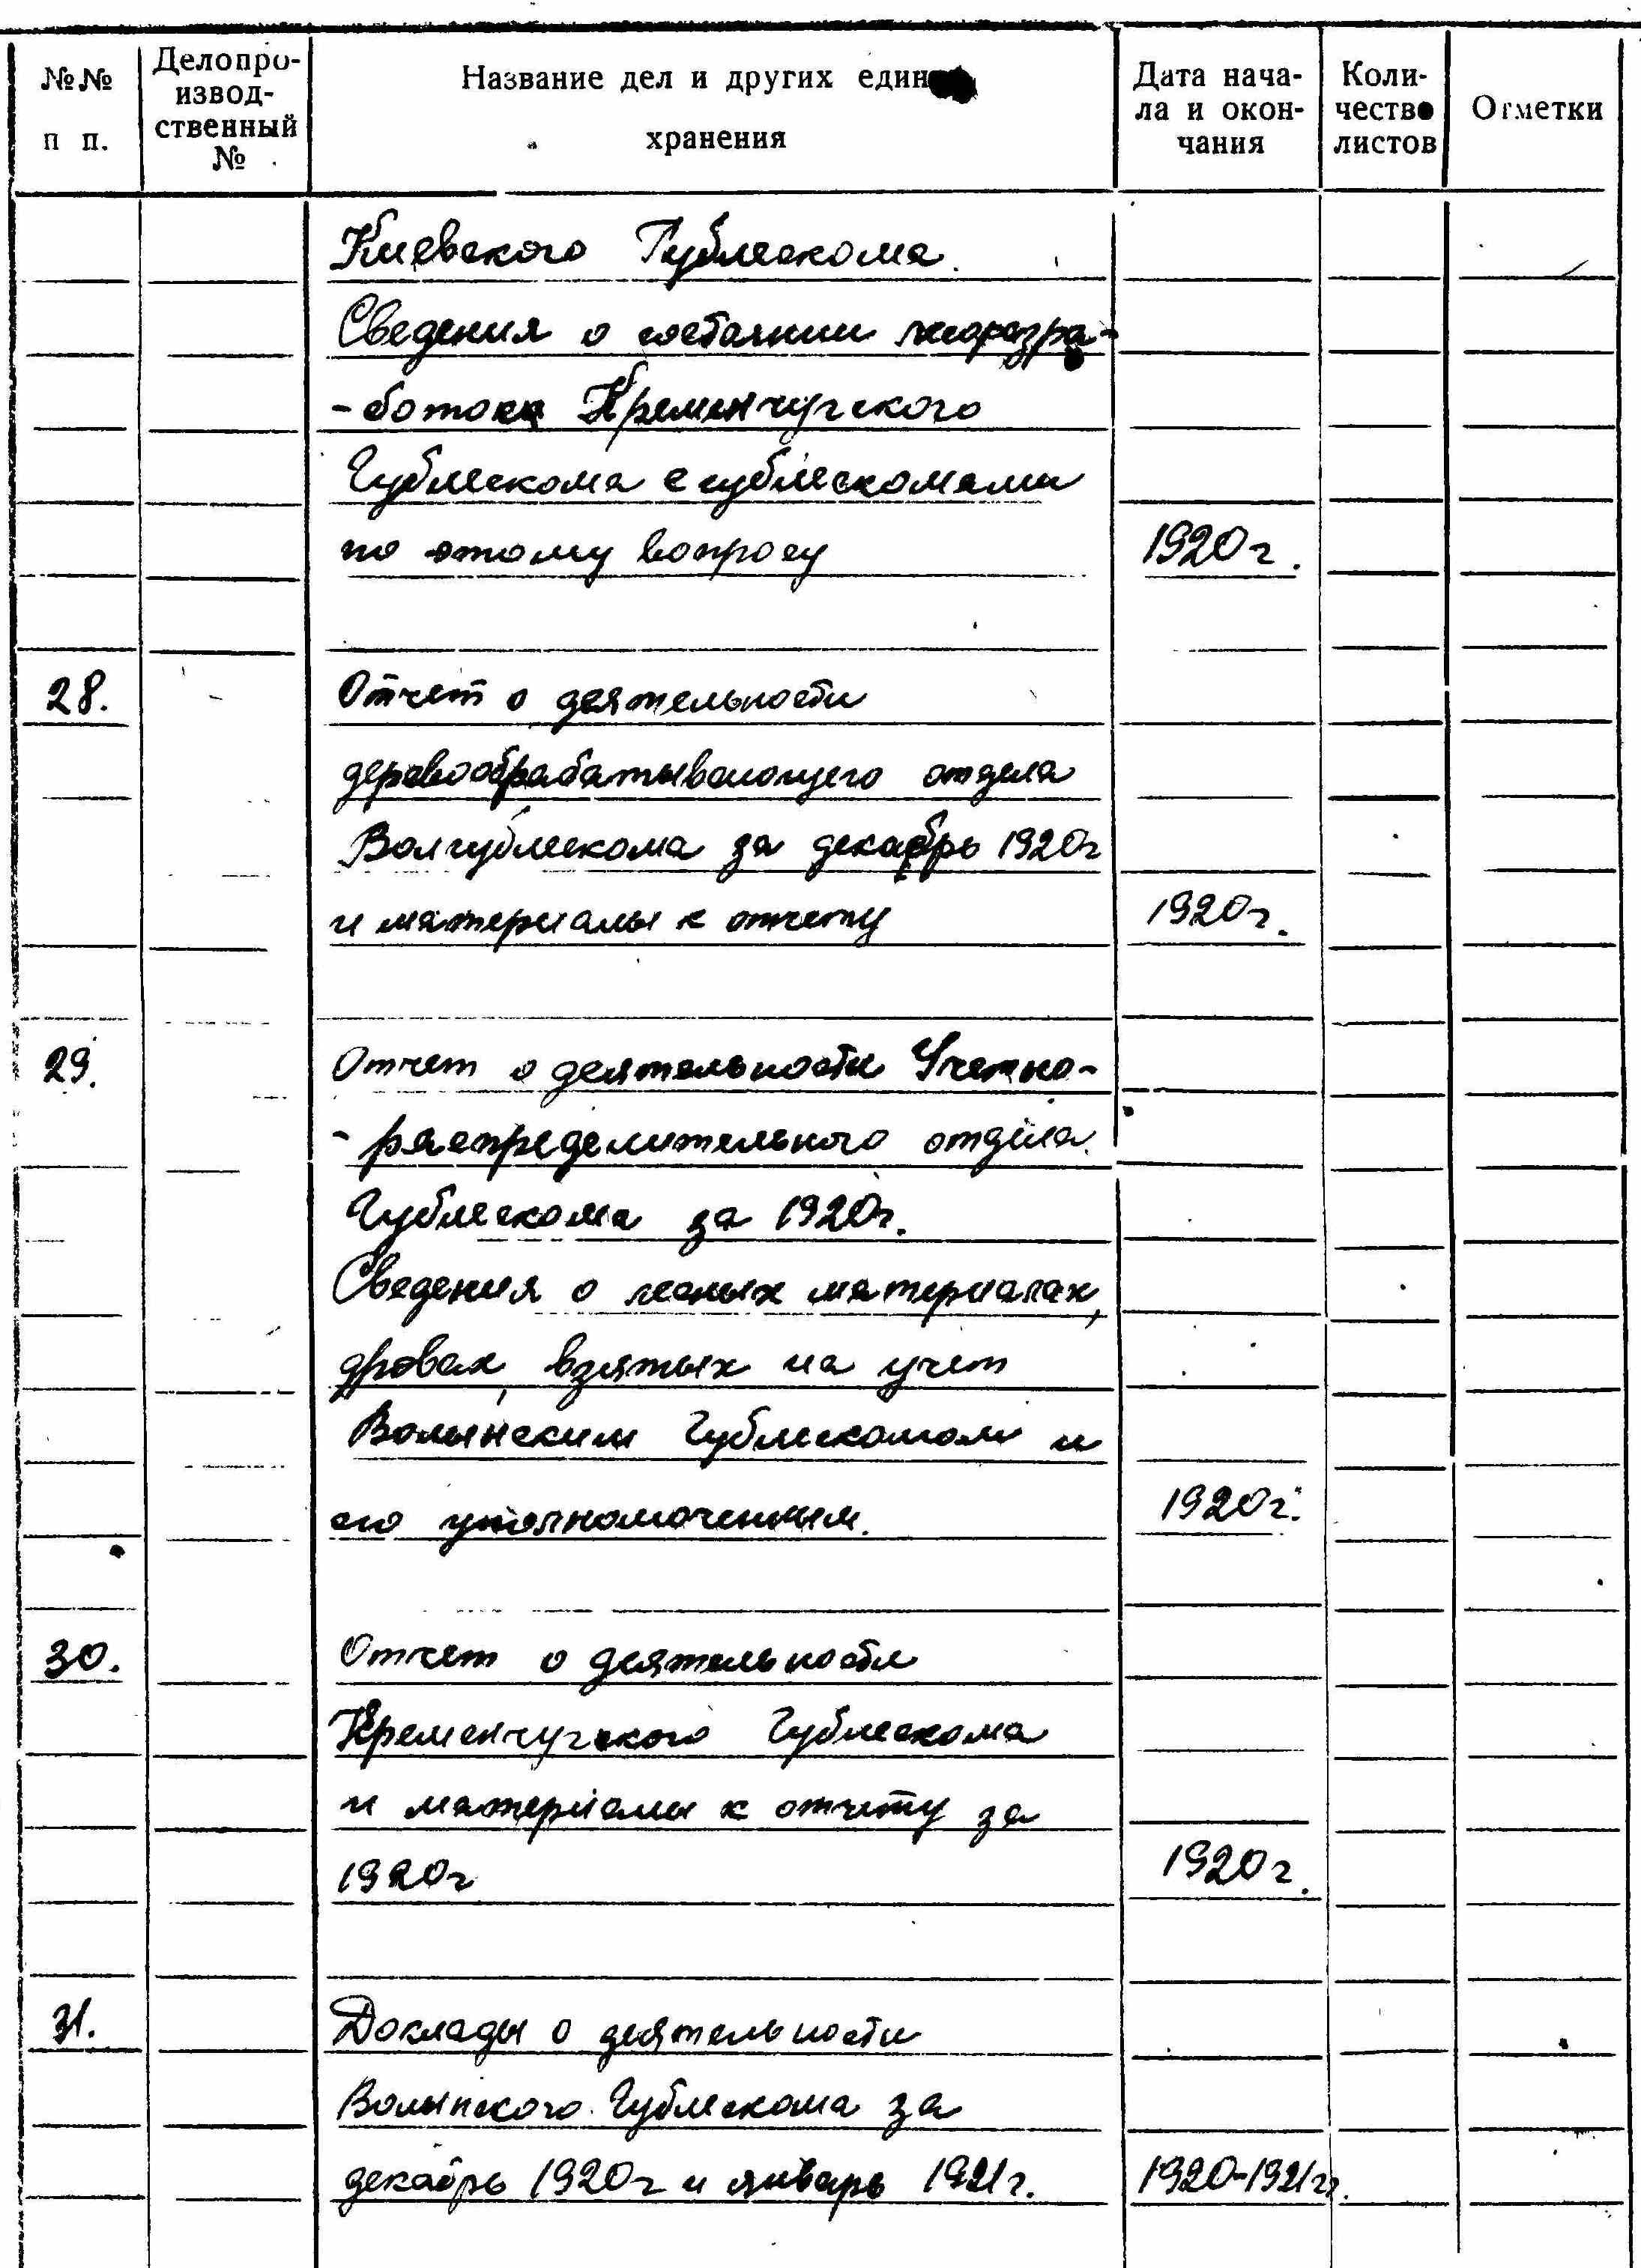 №№ п п.
Делопро-
извод-
ственный
№
Название дел и других един
хранения
Дата нача-
ла и окон-
чания
Коли-
чество
листов
Отметки
Киевского Гублескома.
Сведения о состоянии лесоразра-
-боток Кременчугского
Гублескома с гублескомами
по этому вопросу 1920г.
28. Отчет о деятельности
деревообрабатывающего отдела
Волгублескома за декабрь 1920г
и материалы к отчету 1920г.
29. Отчет о деятельности Учетно-
-распределительного отдела
Гублескома за 1920г.
Сведения о лесных материалах,
дровах, взятых на учет
Волынским Гублескомом и
его уполномоченным. 1920г.
30. Отчет о деятельности
Кременчугского Гублескома
и материалы к отчету за
1920г 1920г.
31. Доклады о деятельности
Волынского Гублескома за
декабрь 1920г и январь 1921г. 1920-1921гг.